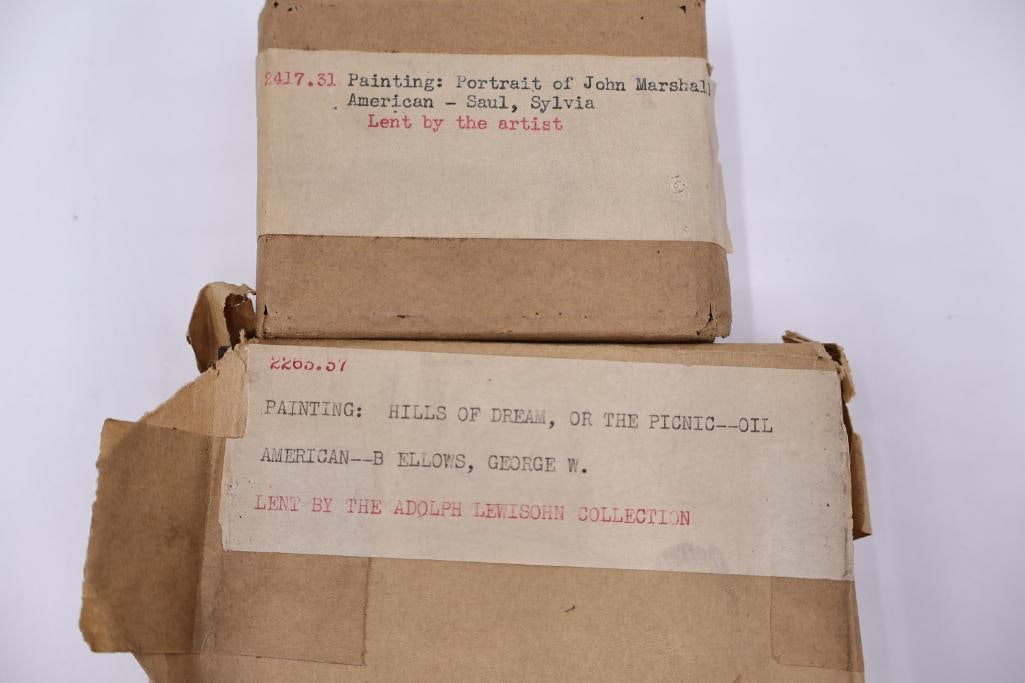 2417.31 Painting: Portrait of John Marshall
American - Saul, Sylvia
Lent by the artist
2265.37
PAINTING: HILLS OF DREAM, OR THE PICNIC--OIL
AMERICAN--B ELLOWS, GEORGE W.
LENT BY THE ADOLPH LEWISOHN COLLECTION